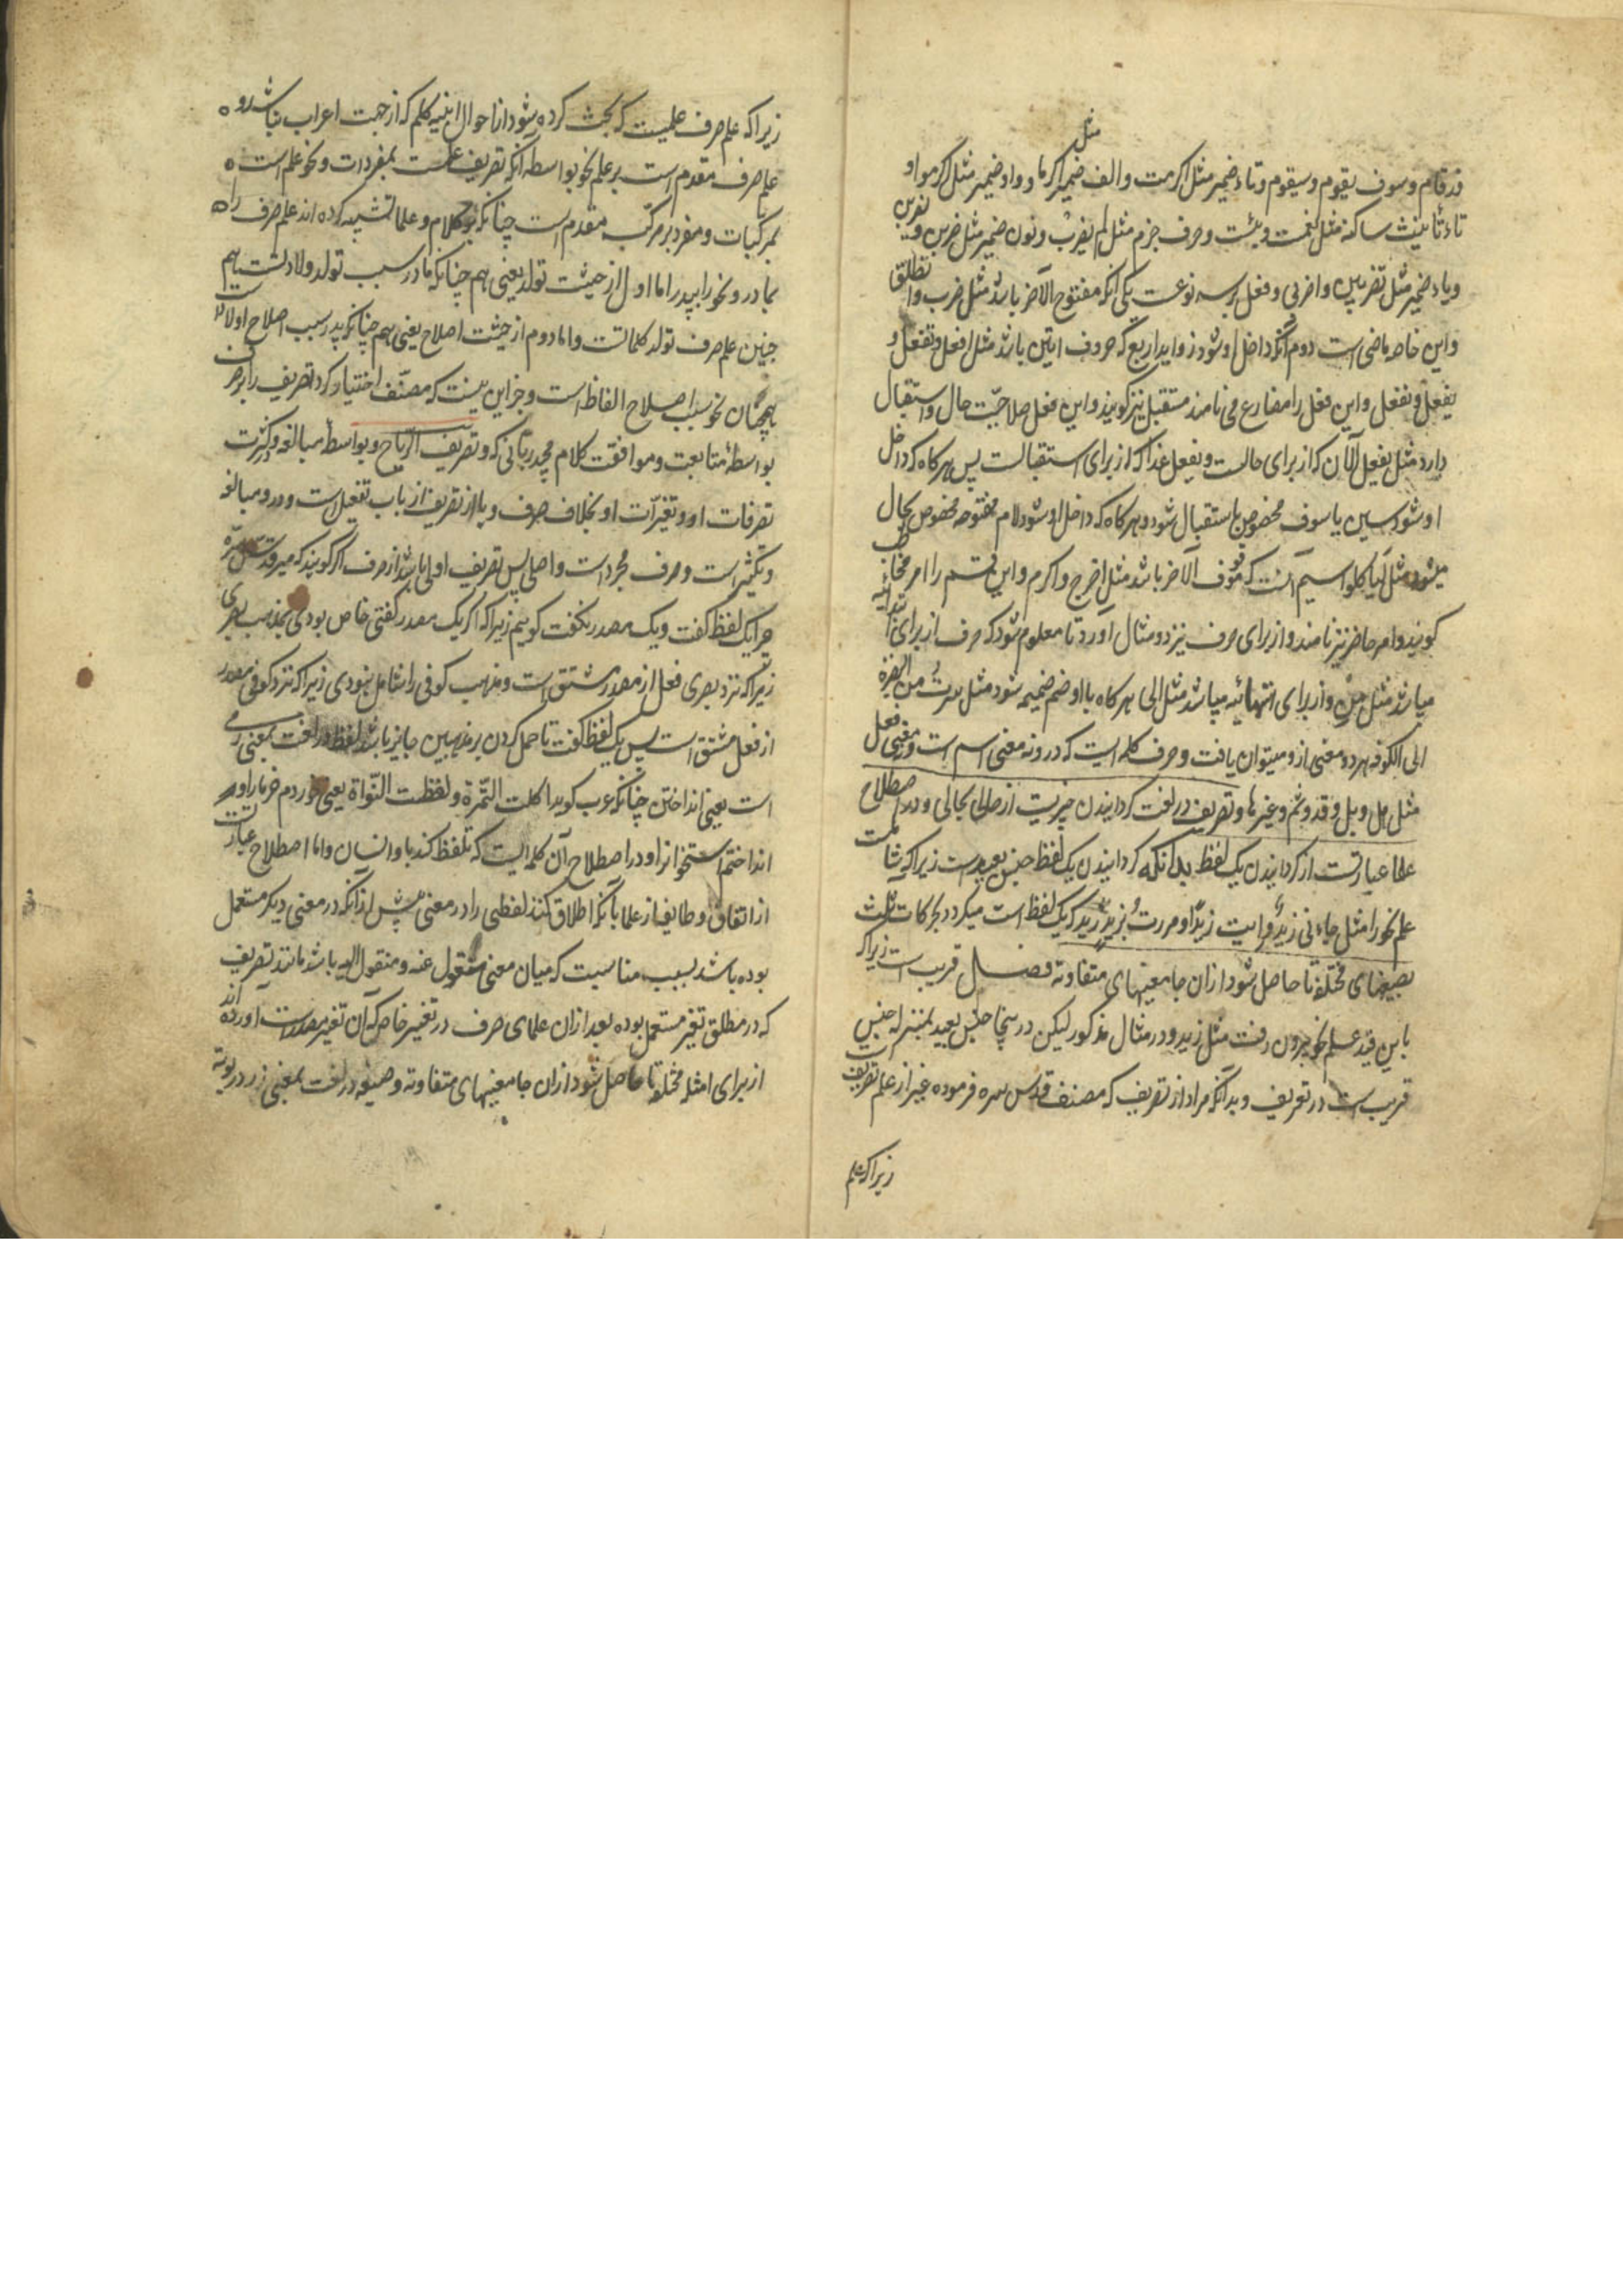 مثل
قد قام و سوف یقوم و سیقوم و تاء ضمیر مثل اکرمت و الف ضمیر اکرما و واو ضمیر مثل اکرموا و
تاء تأنیث ساکنه مثل نعمت و بئست و حرف جزم مثل لم یضرب و نون ضمیر مثل ضربن و یضربن
و یاء ضمیر مثل تضربین و اضربی و فعل بر سه نوعست یکی آنکه مفتوح الآخر باشد مثل ضرب و انطلق
و این خاصه ماضی است دوم آنکه داخل او شود زواید اربع که حروف اتین باشد مثل افعل و تفعل و
یفعل و نفعل و این فعل را مضارع می نامند مستقبل نیز کویند و این فعل صلاحیّت حال و استقبال
دارد مثل یفعل الآن که از برای حالست و یفعل غدا که از برای استقبالست پس هر کاه که داخل
او شود سین یا سوف مخصوص باستقبال شود و هر کاه که داخل او شود لام مفتوحه مخصوص بحال
میشود مثل سیم آنست که موقوف الآخر باشد مثل اخرج و اکرم و این قسم را امر مخاطب
کویند و امر حاضر نیز نامند و از برای حرف نیز دو مثال آورد تا معلوم شود که حرف از برای ابتدائیه
میباشد مثل من و از برای انتهائیه میباشد مثل الی هر کاه با او ضم ضمیمه شود مثل سرت من البصرة
الی الکوفه هر دو معنی ازو میتوان یافت و حرف کلمه ایست که درو نه معنی اسم است و نه معنی فعل
مثل هل و بل و قد و ثم و غیرها و تصریف در لغت کردانیدن چیزیست از حالی بحالی و در اصطلاح
علما عبارتست از کردانیدن یک لفظ بدانکه کردانیدن یک لفظ جنس بعید است زیرا که شاملست
علم نحو را مثل جاءنی زیدٌ و رایت زیدًا و مررت بزیدٍ زید که یک لفظ است میکردد بحرکات ثلث
بصیغهای مختلفه تا حاصل شود ازان جا معنیهای متفاوته فصل قریب است زیرا که
باین قید علم نحو بیرون رفت مثل زید و در مثال مذکور لیکن درینجا جنس بعید بمنزله جنس
قریب است در تعریف و بدانکه مراد از تصریف که مصنف قدس سره فرموده غیر از علم تصریف است
زیرا که علم
زیرا که علم صرف علمیست که بحث کرده میشود از احوال ابنیه کلم که از جهت اعراب نباشد و
علم صرف مقدم است بر علم نحو بواسطه آنکه تصریف علمست بمفردات و نحو علم است
بمرکبات و مفرد بر مرکب مقدم است چنانکه کلام و علما تشبیه کرده اند علم صرف را
بمادر و نحو را بپدر اما اول از حیثت تولد یعنی هم چنانکه مادر سبب تولد ولادتست هم
چنین علم صرف تولد کلماتست و اما دوم از حیثت اصلاح یعنی هم چنانکه پدر سبب اصلاح اولادست
همچنان نحو سبب اصلاح الفاظ است و جز این نیست که مصنّف اختیار کرد تصریف را بر صرف
بواسطهٔ متابعت و موافقت کلام مجید ربّانی که و تصریف الریاح و بواسطهٔ مبالغه و کثرت
تصرفات او و تغیّرات او بخلاف صرف و یا از تصریف از باب تفعیل است و درو مبالغه
و تکثیر است و صرف مجرد است و اصل پس تصریف اولی باشد از صرف اکر کویند که میر قدّس سرّه
چرا یک لفظ کفت و یک مصدر نکفت کوییم زیرا که اکر یک مصدر کفتی خاص بودی بمذهب بصری
زیرا که نزد بصری فعل از مصدر مشتق است و مذهب کوفی را شامل نبودی زیرا که نزد کوفی مصدر
از فعل مشتق است پس یک لفظ کفت تا حمل کردن بر مذهبین جایز باشد لفظ در لغت بمعنی رمی
است یعنی انداختن چنانکه عرب کوید اکلت التّمرة و لفظت النّواة یعنی خوردم خرما را و
انداختم استخوانرا و در اصطلاح آن کلمه ایست که تلفظ کند باو انسان و اما اصطلاح عبارتست
از اتفاق و طایفه از علما بآنکه اطلاق کنند لفظی را در معنی پیش از آنکه در معنی دیکر مستعمل
بوده باشد بسبب مناسبت که میان معنی منقول عنه و منقول الیه باشد مانند تصریف
که در مطلق تغیر مستعمل بوده بعد ازان علمای صرف در تغییر خاص که آن تغیر مصدرست آورده اند
از برای امثله مختلفه تا حاصل شود ازان جا معنیهای متفاوته و صیغه در لغت بمعنی زر در بوته